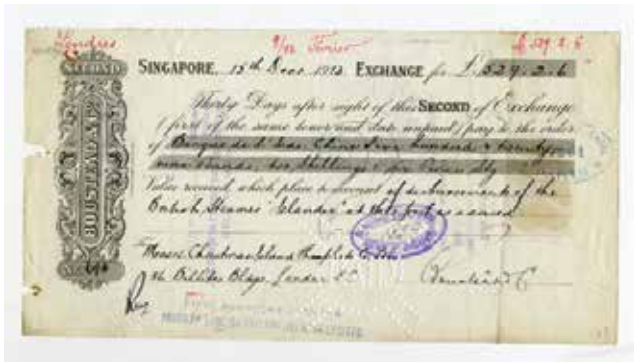 Londres 9/12 Février £ 529.2.6
SECOND
SINGAPORE, 15th Decr. 1913. EXCHANGE for £529.2.6
Thirty Days after sight of this SECOND of Exchange
(first of the same tenor and date unpaid) pay to the order
of Banque de l'Indo Chine Five hundred & twenty
nine Pounds, two Shillings & six Pence Stg
Value received, which place to account of disbursements of the
British Steamer "Islander" at this port as
Messrs
Billiter Bldgs, London E.C.
Boustead & Co
BOUSTEAD & Co